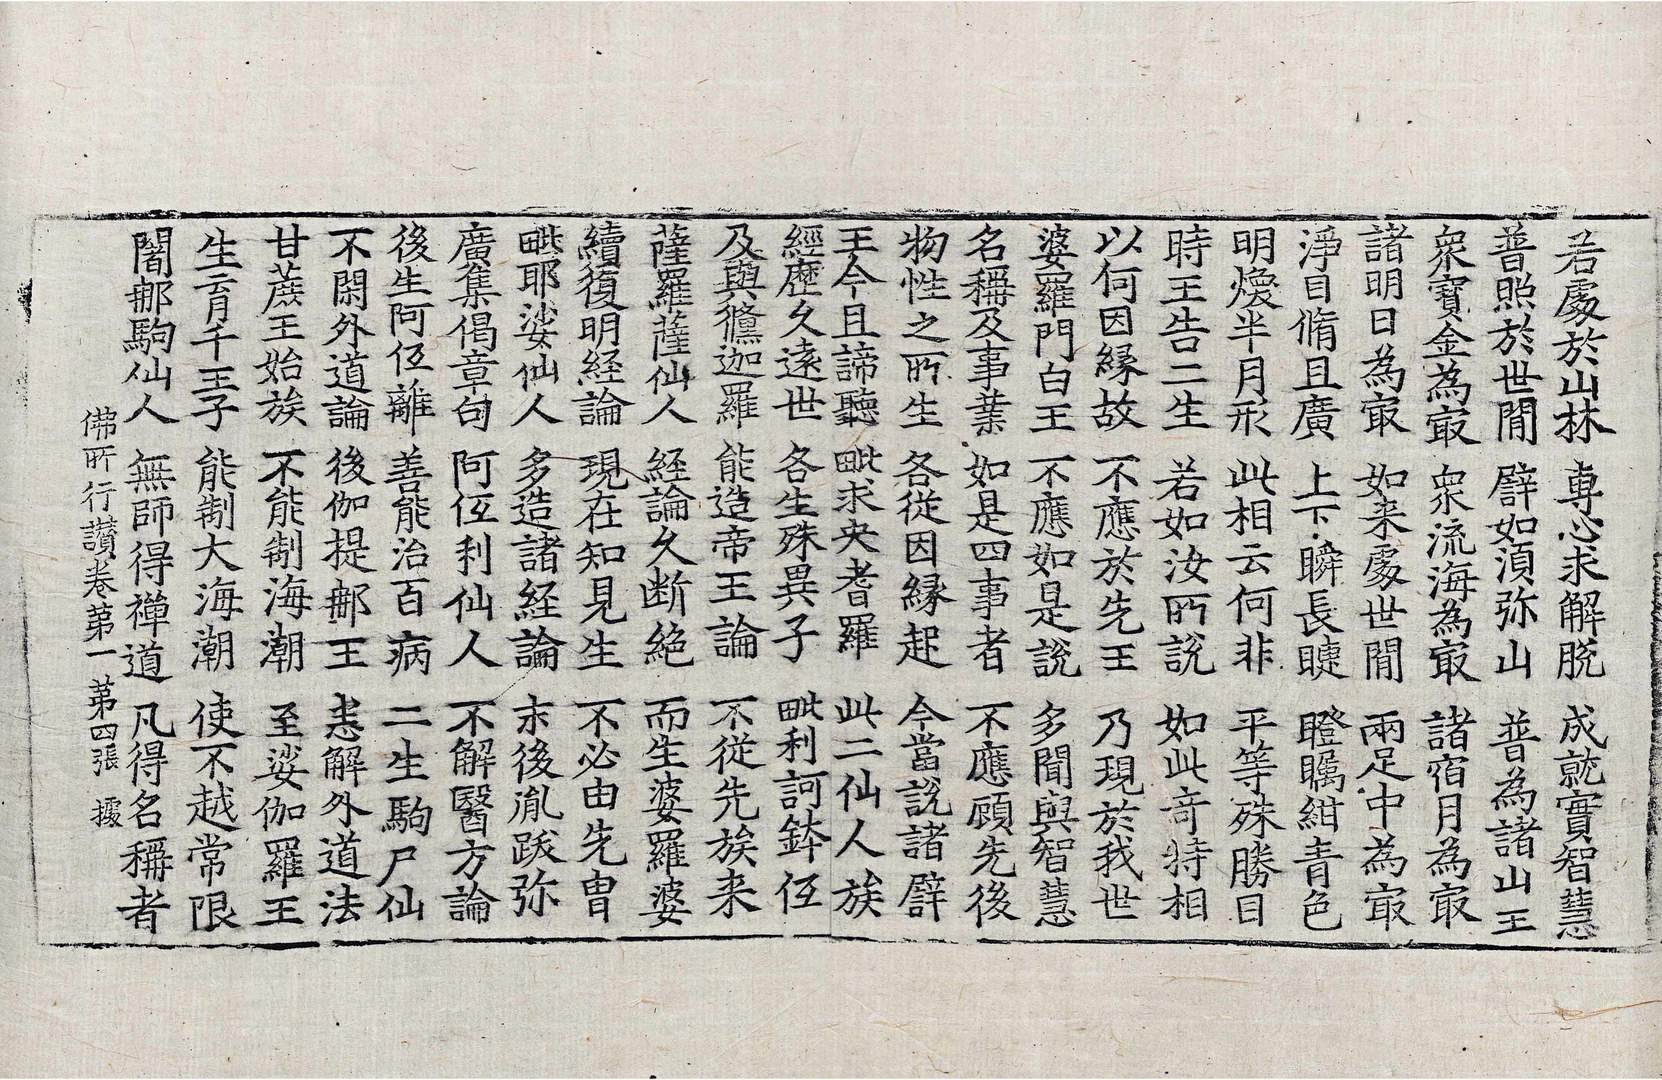 若處於山林 專心求解脫 成就實智慧
普照於世閒 譬如須弥山 普為諸山王
衆寶金為㝡 衆流海為㝡 諸宿月為㝡
諸明日為㝡 如来處世閒 兩足中為㝡
淨目脩且廣 上下瞬長睫 瞪矚紺青色
明煥半月形 此相云何非 平等殊勝目
時王告二生 若如汝所說 如此奇特相
以何因緣故 不應於先王 乃現於我世
婆羅門白王 不應如是說 多聞與智慧
名稱及事業 如是四事者 不應顧先後
物性之所生 各從因緣起 今當說諸譬
王今且諦聽 毗求央耆羅 此二仙人族
經歷久遠世 各生殊異子 毗利訶鉢低
及與儵迦羅 能造帝王論 不從先族来
薩羅薩仙人 經論久断絕 而生婆羅婆
續復明經論 現在知見生 不必由先冑
毗耶娑仙人 多造諸經論 末後胤跋弥
廣集偈章句 阿低利仙人 不解醫方論
後生阿低離 善能治百病 二生駒尸仙
不閑外道論 後伽提郍王 悉解外道法
甘蔗王始族 不能制海潮 至娑伽羅王
生育千王子 能制大海潮 使不越常限
闍郍駒仙人 無師得禪道 凡得名稱者
佛所行讚卷第一 第四張 援